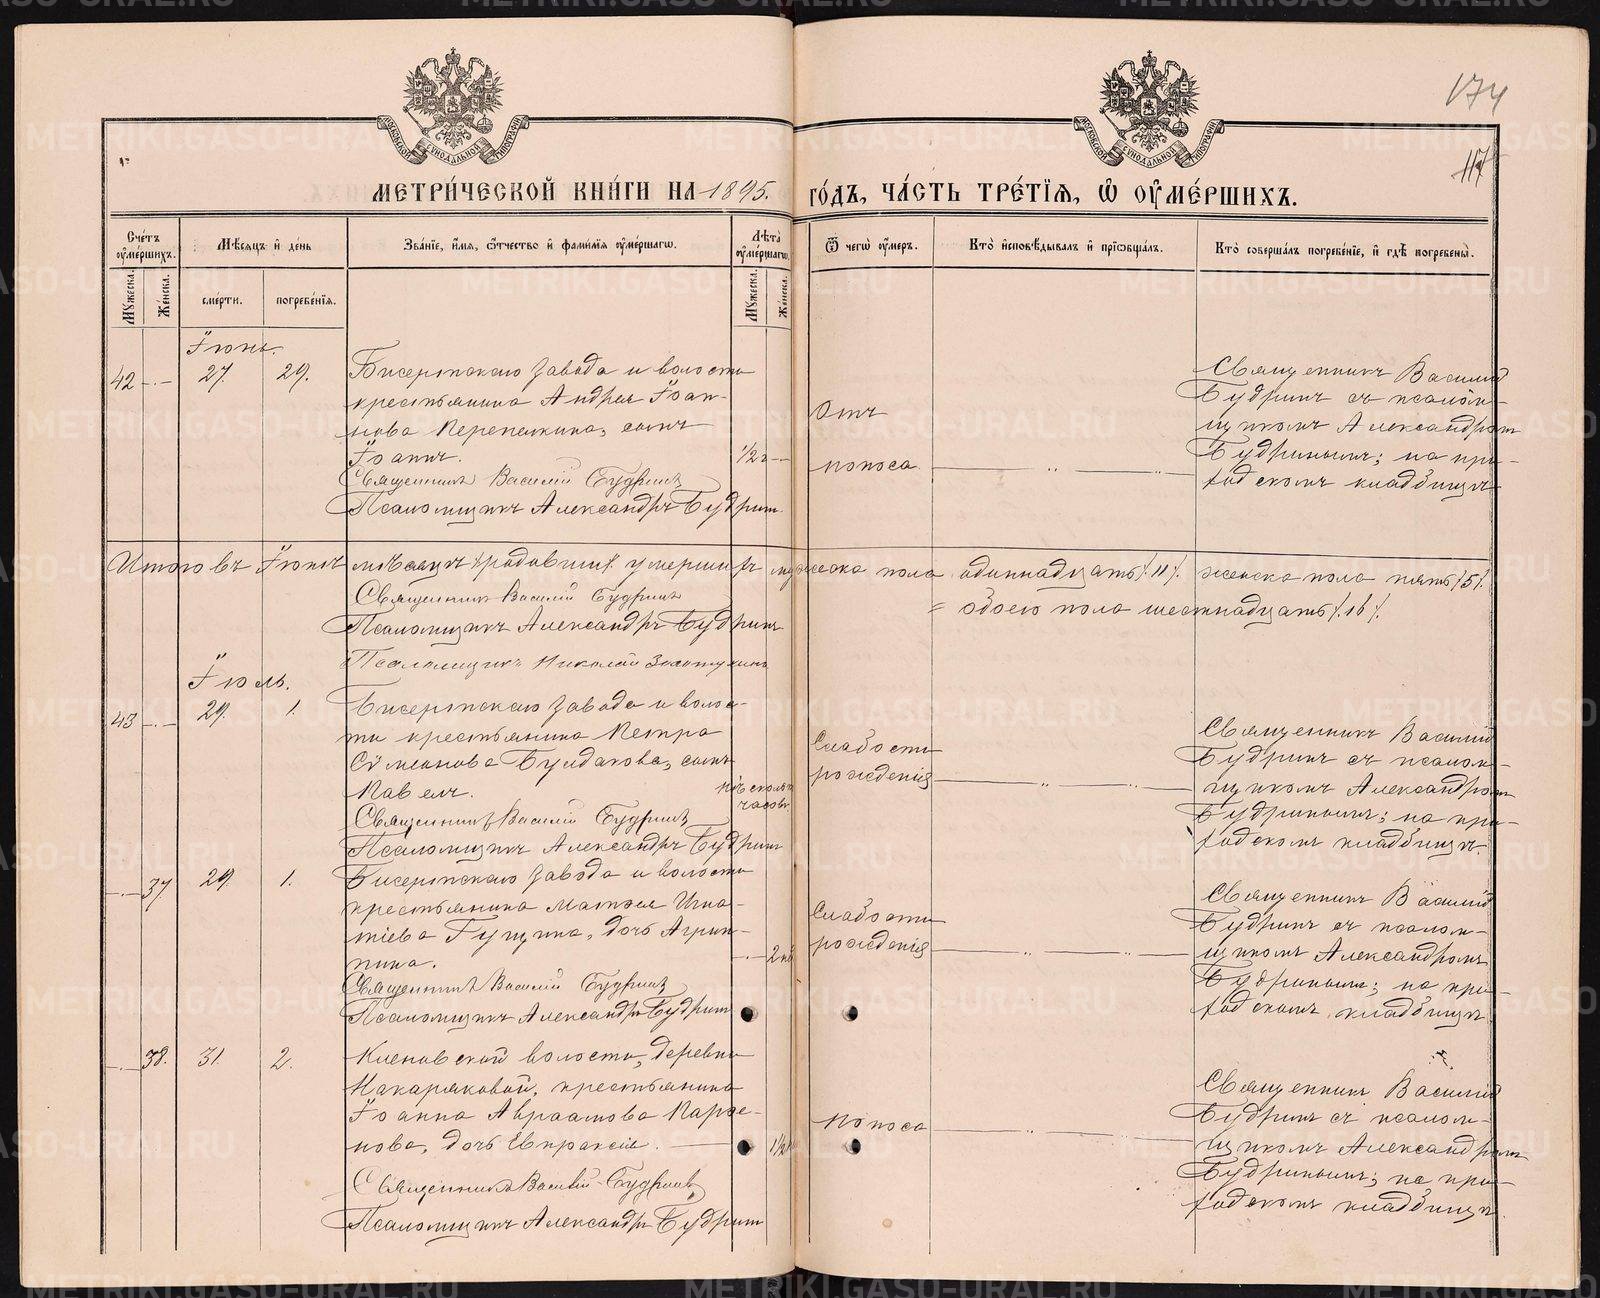 174
117
МЕТРИ́ЧЕСКОЙ КНИ́ГИ НА 1895. ГО́ДЪ, ЧА́СТЬ ТРЕ́ТЇѦ, Ѡ҆ ОУ҆МЕ́РШИХЪ.
Сче́тъ оу҆ме́ршихъ.
Мѣ́сѧцъ и҆ де́нь
Зва́нїе, и҆́мѧ, ѻ҆́тчество и҆ фами́лїѧ оу҆ме́ршагѡ.
Лѣ́та оу҆ме́ршагѡ.
Ѿ чегѡ̀ оу҆́меръ.
Кто̀ и҆сповѣ́дывалъ и҆ прїѡбща́лъ.
Кто̀ соверша́лъ погребе́нїе, и҆ гдѣ̀ погребены̀.
Мꙋ́жеска.
Же́нска.
сме́рти.
погребе́нїѧ.
Мꙋ́жеска.
Же́нска.
Іюнь.
42 27. 29.
Бисертскаго завода и волости
крестьянина Андрея Іоан-
нова Перепелкина, сынъ
Іоаннъ. 1/2 г
Священникъ Василій Будринъ
Псаломщикъ Александръ Будрин
Отъ
поноса
Священникъ Василій
Будринъ съ псалом-
щикомъ Александром
Будринымъ; на при-
ходскомъ кладбищѣ
Итого въ Іюнѣ мѣсяцѣ умерших мужеска пола одиннадцать /.11/. женска пола пять /5/.
= обоего пола шестнадцать /.16/.
Священникъ Василій Будринъ
Псаломщикъ Александръ Будринъ
Псаломщикъ Николай
Іюль.
43 29. 1.
Бисертскаго завода и волос-
ти крестьянина Петра
Сѵмеонова Булдакова, сынъ
Павелъ. нѣсколько
часов.
Священникъ Василій Будринъ
Псаломщикъ Александръ Будрин
Слабости
рожденія
Священникъ Василій
Будринъ съ псалом-
щикомъ Александром
Будринымъ; на при-
ходскомъ кладбищѣ.
37 29. 1.
Бисертскаго завода и волости
крестьянина Матѳея Игна-
тіева Гущина, дочь Агрип-
пина. 2 н
Священникъ Василій Будринъ
Псаломщикъ Александръ Будрин
Слабости
рожденія
Священникъ Василій
Будринъ съ псалом-
щикомъ Александромъ
Будринымъ; на при-
ходскомъ кладбищѣ.
38. 31. 2.
Кленовской волости, деревни
Накаряковой, крестьянина
Іоанна Авраамова Парѳе-
нова, дочь Евпраксія. 1/2
Священникъ Василій Будринъ
Псаломщикъ Александръ Будрин
поноса
Священникъ Василій
Будринъ съ псалом-
щикомъ Александром
Будринымъ; на при-
ходскомъ кладбищѣ.
METRIKI.GASO-URAL.RU